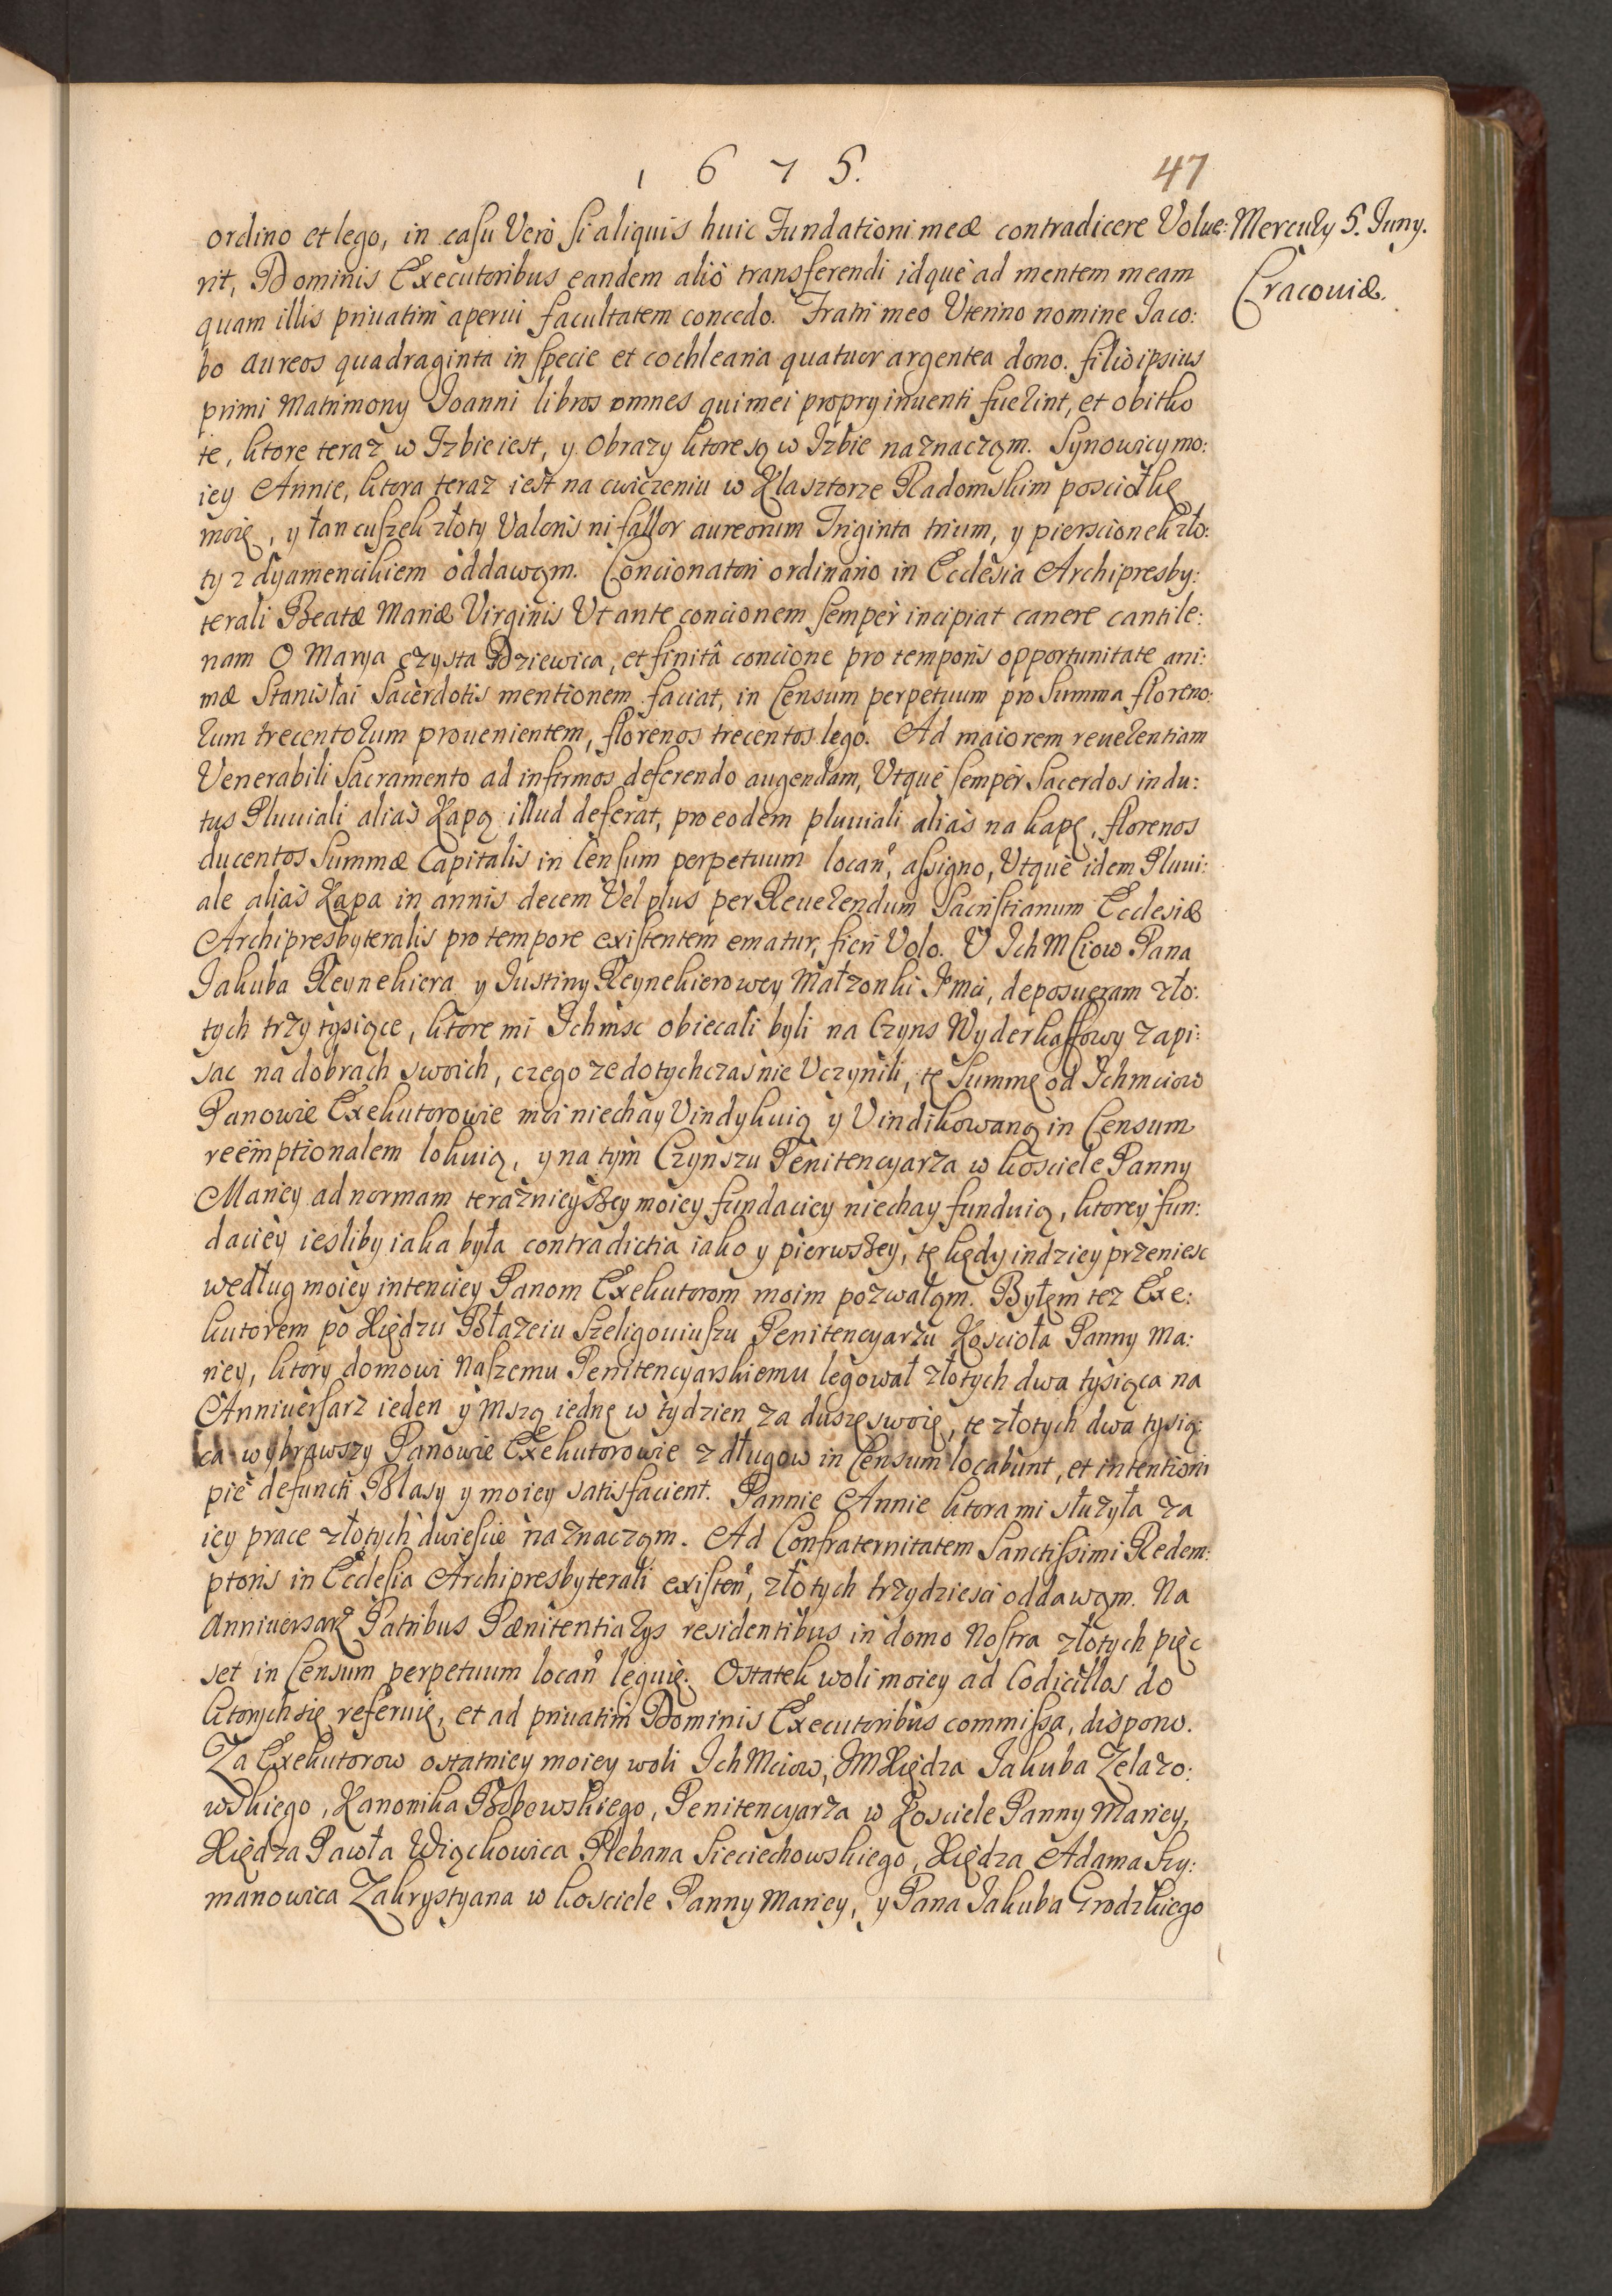 1 6 7 5.
47
ordino et lego, in casu Verò si aliquis huic Fundationi meæ contradicere Volue:
Mercury 5. Juny.
Cracoviæ.
rit, Dominis Executoribus eandem aliò transferendi idquè ad mentem meam
quam illis privatim aperui facultatem concedo. Fratri meo Uterino nomine Jaco:
bo aureos quadraginta in specie et cochlearia quatuor argentea dono. filio ipsius
primi Matrimony Joanni libros omnes qui mei propry inventi fuerint, et obitko
te, ktore teraz w Izbie iest, y Obrazy ktore są w Izbie naznacząm. Synowicy mo:
iey Annie, ktora teraz iest na cwiczeniu w Klasztorze Radomskim posciołkę
moię, y łancuszek złoty Valoris ni fallor aureorum Triginta trium, y pierscionek zło:
ty z dyamencikiem oddawąm. Concionatori ordinario in Ecclesia Archipresby:
terali Beatæ Mariæ Virginis Ut ante concionem semper incipiat canere cantile:
nam O Marya czysta Dziewica, et finitâ concione pro temporis opportunitate ani:
mæ Stanislai Sacerdotis mentionem faciat, in Censum perpetuum pro Summa floreno:
rum trecentorum provenientem, florenos trecentos lego. Ad maiorem reverentiam
Venerabili Sacramento ad infirmos deferendo augendam, Utquè semper Sacerdos indu:
tus Pluviali aliàs Kapą illud deferat, pro eodem pluviali aliàs na kapę, florenos
ducentos Summæ Capitalis in Censum perpetuum locañ, assigno, Utquè idem Pluvi:
ale aliàs Kapa in annis decem Vel plus per Reverendum Sacristianum Ecclesiæ
Archipresbyteralis pro tempore existentem ematur, fieri Volo. U Ich Mciow Pana
Jakuba Reynekiera y Justiny Reynekierowey Małzonki Jmci, deposueram zło:
tych trzy tysiące, ktore mi Ichmsc obiecali byli na Czyns Wyderkaffowy zapi:
sac na dobrach swoich, czego ze dotychczas nie Uczynili, tę Summę od Ichmciow
Panowie Exekutorowie moi niechay Vindykuią y Vindikowaną in Censum
reëmptionalem lokuią, y na tym Czynszu Penitencyarza w kosciele Panny
Mariey ad normam teraznieyszey moiey fundaciey niechay funduią, ktorey fun:
daciey iesliby iaka była contradictia iako y pierwszey, tę kędy indziey przeniesc
według moiey intenciey Panom Exekutorom moim pozwałąm. Byłem tez Exe:
kutorem po Xiędzu Błazeiu Szeligoviuszu Penitencyarzu Koscioła Panny Ma:
riey, ktory domowi naszemu Penitencyarskiemu legował złotych dwa tysiąca na
Anniversarz ieden y Mszą iednę w tydzien za duszę swoię, te złotych dwa tysią:
ca wybrawszy Panowie Exekutorowie z długow in Censum locabunt, et intentioni
piè defuncti Blasy y moiey satisfacient. Pannie Annie ktora mi słuzyła za
iey prace złotych dwiescie naznacząm. Ad Confraternitatem Sanctissimi Redem:
ptoris in Ecclesia Archipresbyterali existeñ, złotych trzydziesci oddawąm. Na
Anniversarz Patribus Pænitentiarys residentibus in domo Nostra złotych pięc
set in Censum perpetuum locañ leguię. Ostatek woli moiey ad Codicillos do
ktorych się referuię, et ad privatim Dominis Executoribus commissa, dispono.
Za Exekutorow ostatniey moiey woli Ich Mciow, JM Xiędza Jakuba Zelazo:
wskiego, Kanonika Bobowskiego, Penitencyarza w Kosciele Panny Mariey,
Xiędza Pawła Wiąckowica Plebana Sieciechowskiego, Xiędza Adama Szy:
manowica Zakrystyana w kosciele Panny Mariey, y Pana Jakuba Grodzkiego